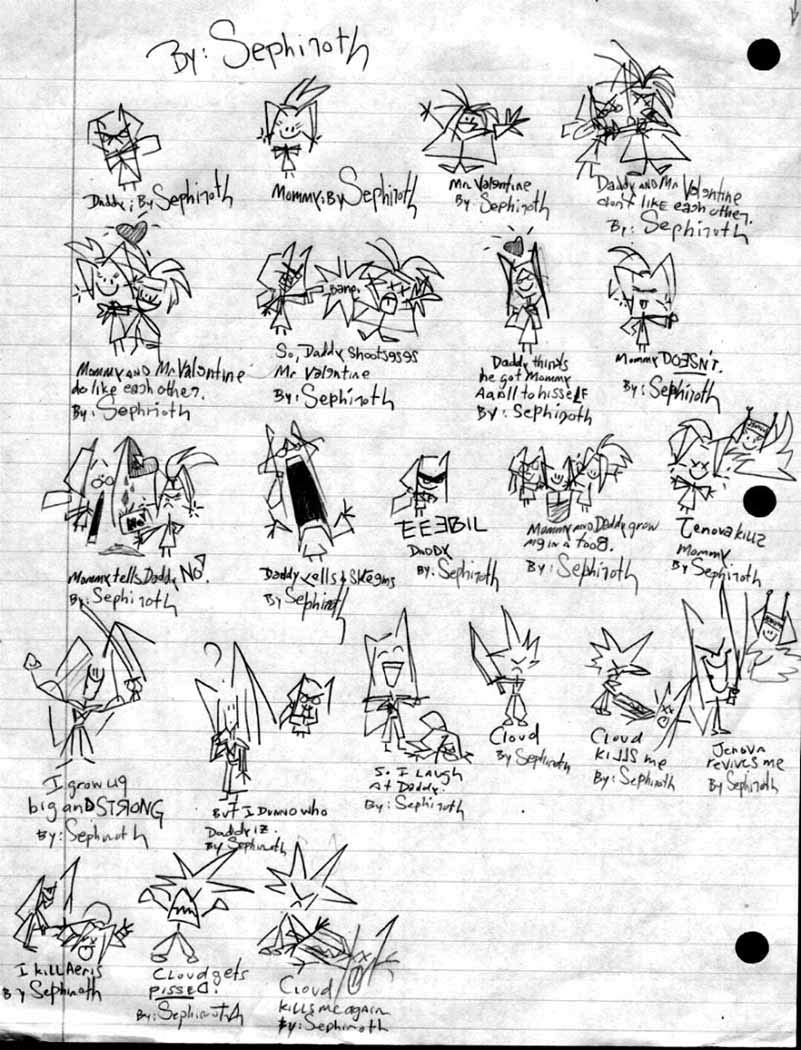 By: Sephiroth
Daddy; By Sephiroth
Mommy; By Sephiroth
Mr. Valentine
By: Sephiroth
Daddy AND Mr Valentine
don't LIKE each other.
By: Sephiroth
Mommy AND Mr. Valentine
do like each other.
By: Sephiroth
Bang.
So, Daddy Shootseses
Mr. Valentine
By: Sephiroth
Daddy thinks
he got Mommy
Aaall to hisself
By: Sephiroth
Mommy DOESN'T.
By: Sephiroth
No!
Mommy tells Daddy NO.
By: Sephiroth
Daddy yells & skeems
By Sephiroth
EEEBIL
DADDY
By: Sephiroth
Mommy AND Daddy grow
me in a toob.
By: Sephiroth
Jenova killz
Mommy
By Sephiroth
I grow up
big and STRONG
By: Sephiroth
But I DUNNO who
Daddy iz.
By Sephiroth
So I LAugh
At Daddy.
By: Sephiroth
Cloud
By Sephiroth
Cloud
kills me
By: Sephiroth
Jenova
revives me
By Sephiroth
I kill Aeris
By Sephiroth
Cloud gets
pissed!
By: Sephiroth
Cloud
kills me again
By: Sephiroth